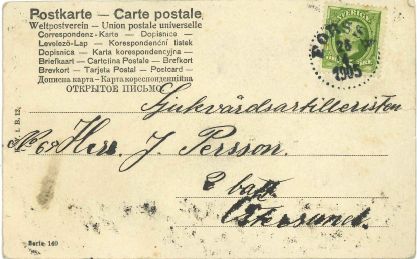 Postkarte – Carte postale
Weltpostverein – Union postale universelle
Correspondenz-Karte – Dopisnice –
Levelező-Lap – Korespondenční lístek
Dopisnica – Karta korespondencyjna –
Briefkaart – Cartolina Postale – Brefkort
Brevkort – Tarjeta Postal – Postcard –
Дописна карта – Карта кореспонденційна
ОТКРЫТОЕ ПИСЬМО
SVERIGE
28
4
1905
Sjukvårdsartilleristen
No 69 Herr J. Persson.
2 batt
Östersund.
Serie 140